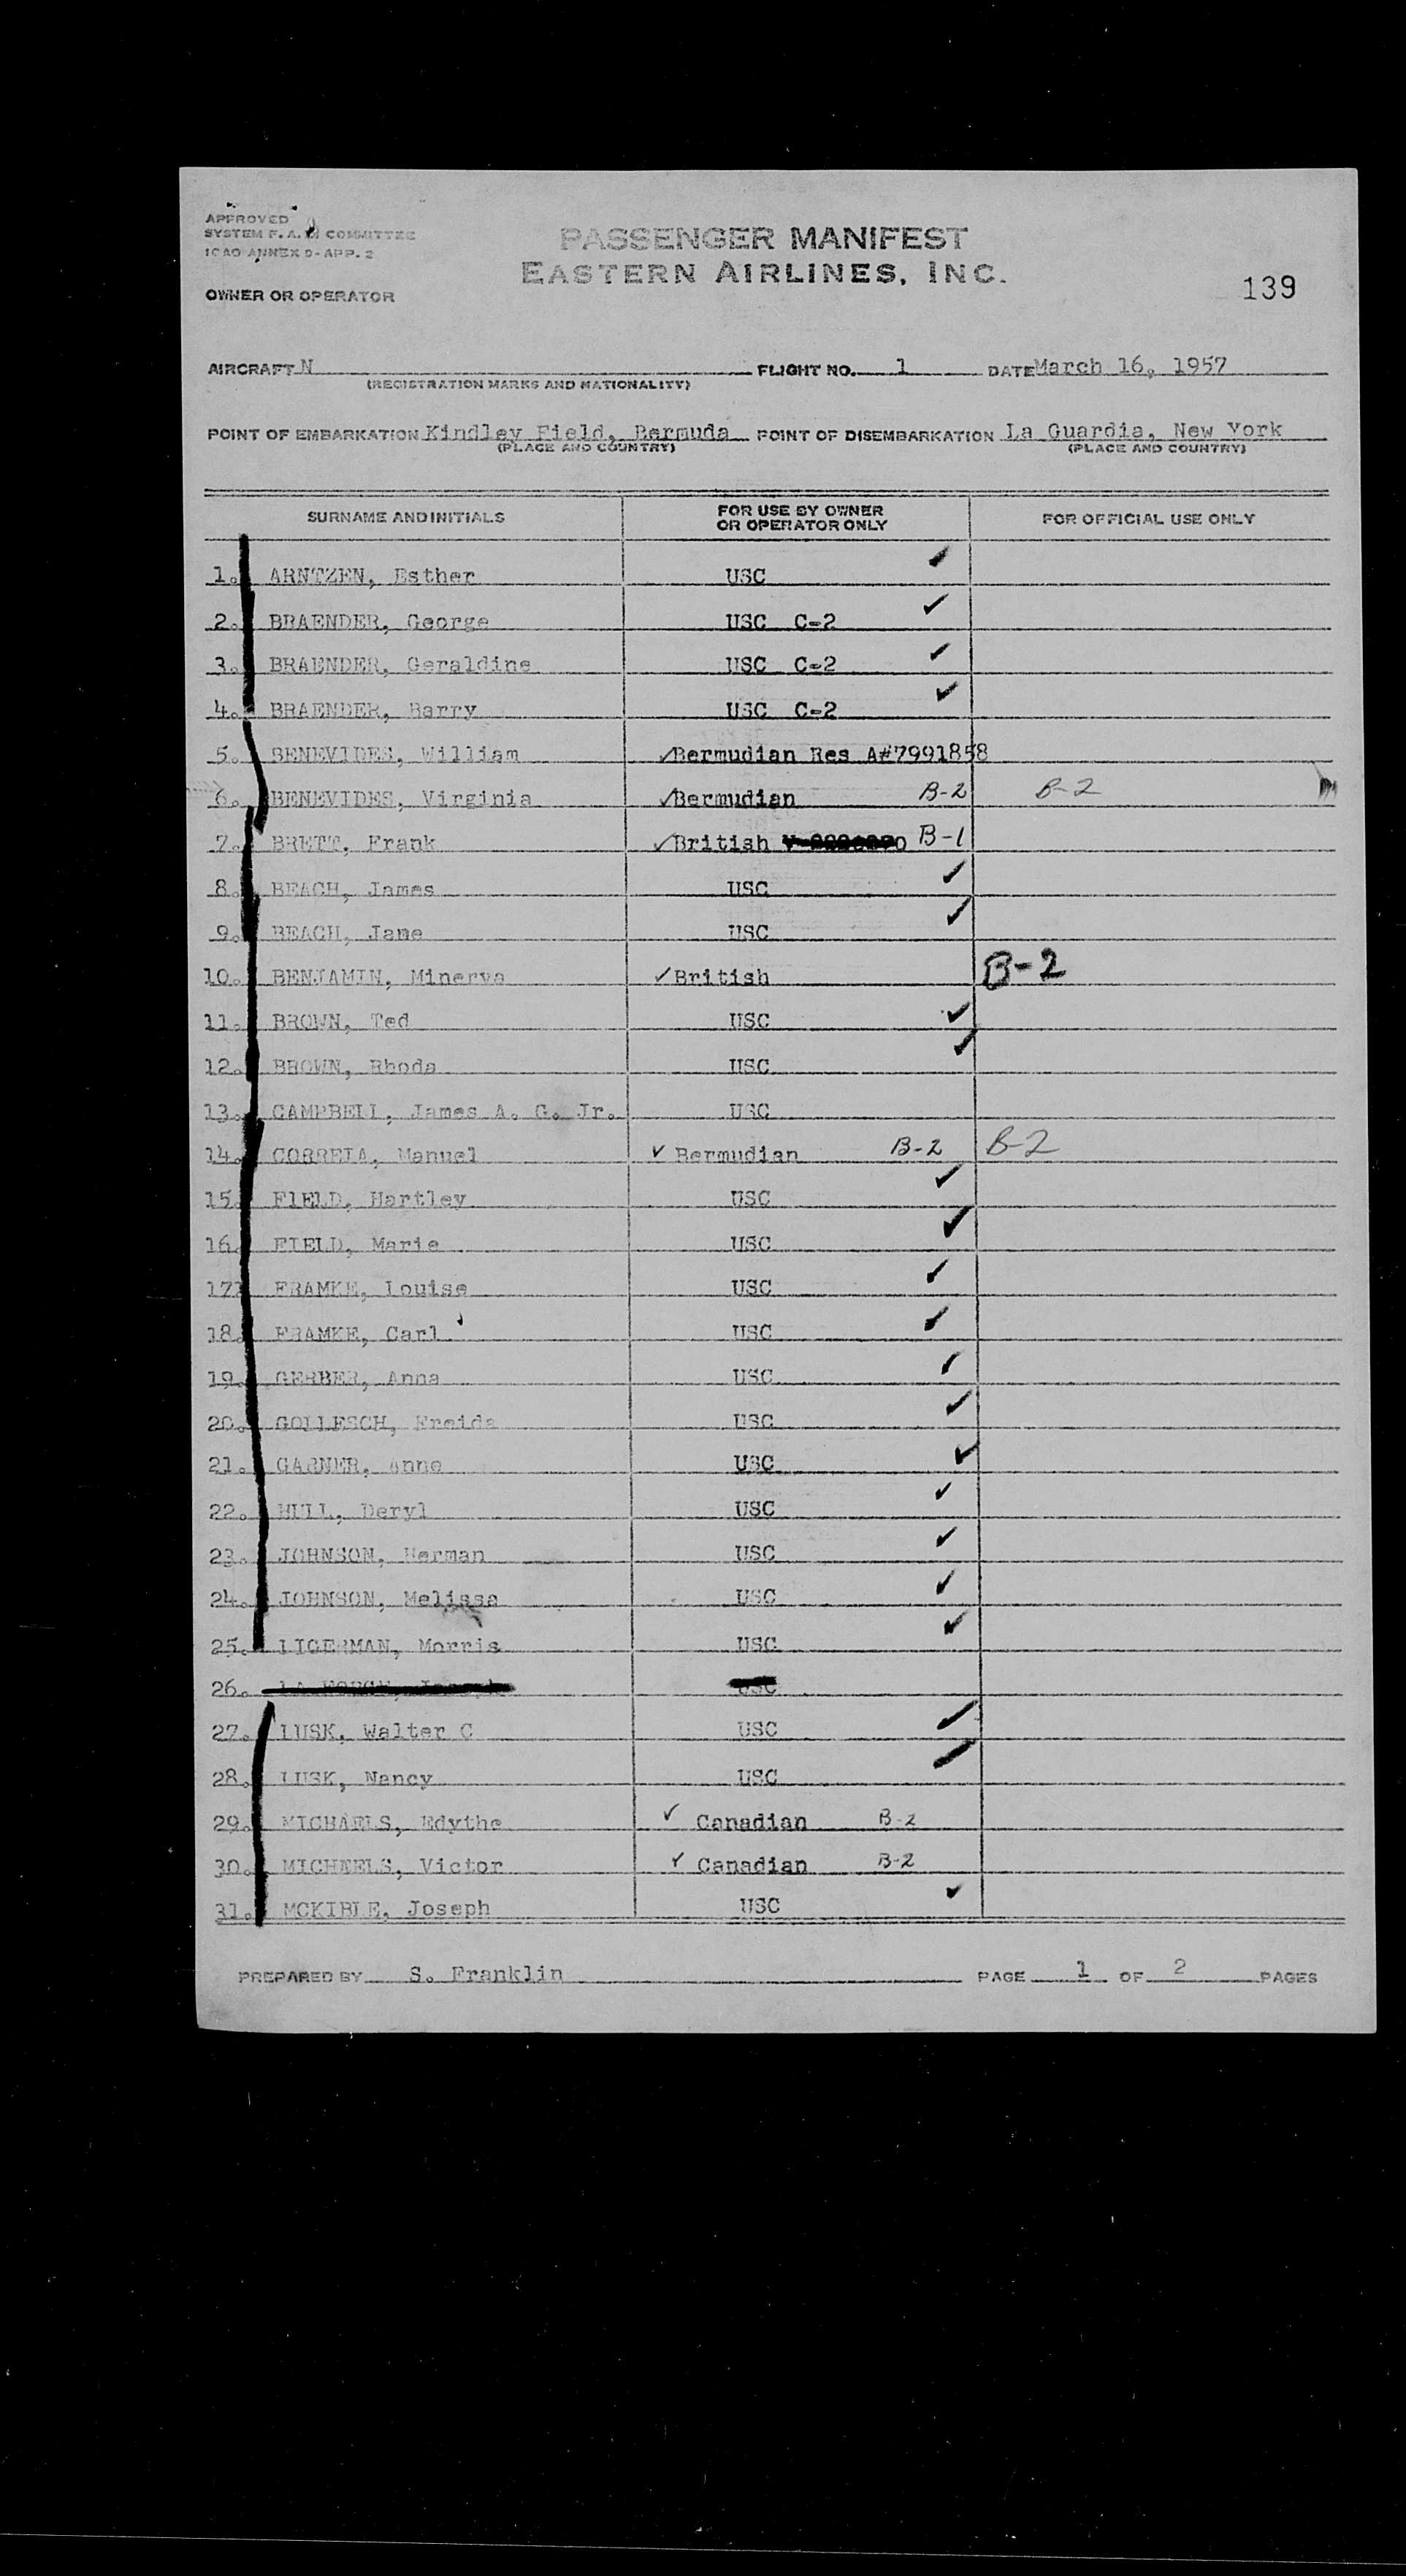 APPROVED
SYSTEM F. A. L. COMMITTEE
ICAO ANNEX 9-APP. 2
PASSENGER MANIFEST
EASTERN AIRLINES, INC.
139
OWNER OR OPERATOR
AIRCRAFT N FLIGHT NO. 1 DATE March 16, 1957
(REGISTRATION MARKS AND NATIONALITY)
POINT OF EMBARKATION Kindley Field, Bermuda POINT OF DISEMBARKATION La Guardia, New York
(PLACE AND COUNTRY) (PLACE AND COUNTRY)
SURNAME AND INITIALS FOR USE BY OWNER OR OPERATOR ONLY FOR OFFICIAL USE ONLY
1. ARNTZEN, Esther USC ✓
2. BRAENDER, George USC C-2 ✓
3. BRAENDER, Geraldine USC C-2 ✓
4. BRAENDER, Barry USC C-2 ✓
5. BENEVIDES, William ✓Bermudian Res A#7991858
6. BENEVIDES, Virginia ✓Bermudian B-2 B-2
7. BRETT, Frank ✓British B-1
8. BEACH, James USC ✓
9. BEACH, Jane USC ✓
10. BENJAMIN, Minerva ✓British B-2
11. BROWN, Ted USC ✓
12. BROWN, Rhoda USC ✓
13. CAMPBELL, James A. G. Jr. USC
14. CORREIA, Manuel ✓ Bermudian B-2 B-2
15. FIELD, Hartley USC ✓
16. FIELD, Marie USC ✓
17 FRAMKE, Louise USC ✓
18. FRAMKE, Carl USC ✓
19. GERBER, Anna USC ✓
20. GOLLESCH, Freida USC ✓
21. GARNER, Anne USC ✓
22. HULL, Deryl USC ✓
23. JOHNSON, Herman USC ✓
24. JOHNSON, Melissa USC ✓
25. LIGERMAN, Morris USC ✓
26. USC
27. LUSK, Walter C USC ✓
28. LUSK, Nancy USC ✓
29. MICHAELS, Edythe ✓ Canadian B-2
30. MICHEELS, Victor ✓ Canadian B-2
31. MCKIBLE, Joseph USC ✓
PREPARED BY S. Franklin PAGE 1 OF 2 PAGES